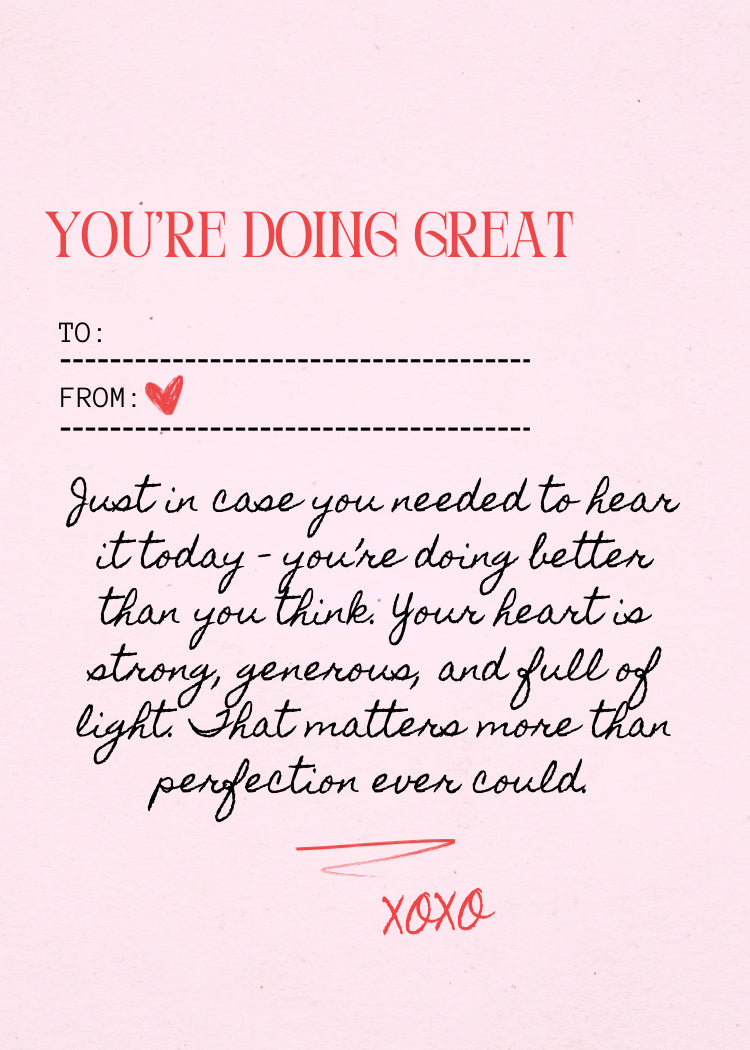 YOU'RE DOING GREAT
TO:
FROM:
Just in case you needed to hear
it today - you're doing better
than you think. Your heart is
strong, generous, and full of
light. That matters more than
perfection ever could.
XOXO